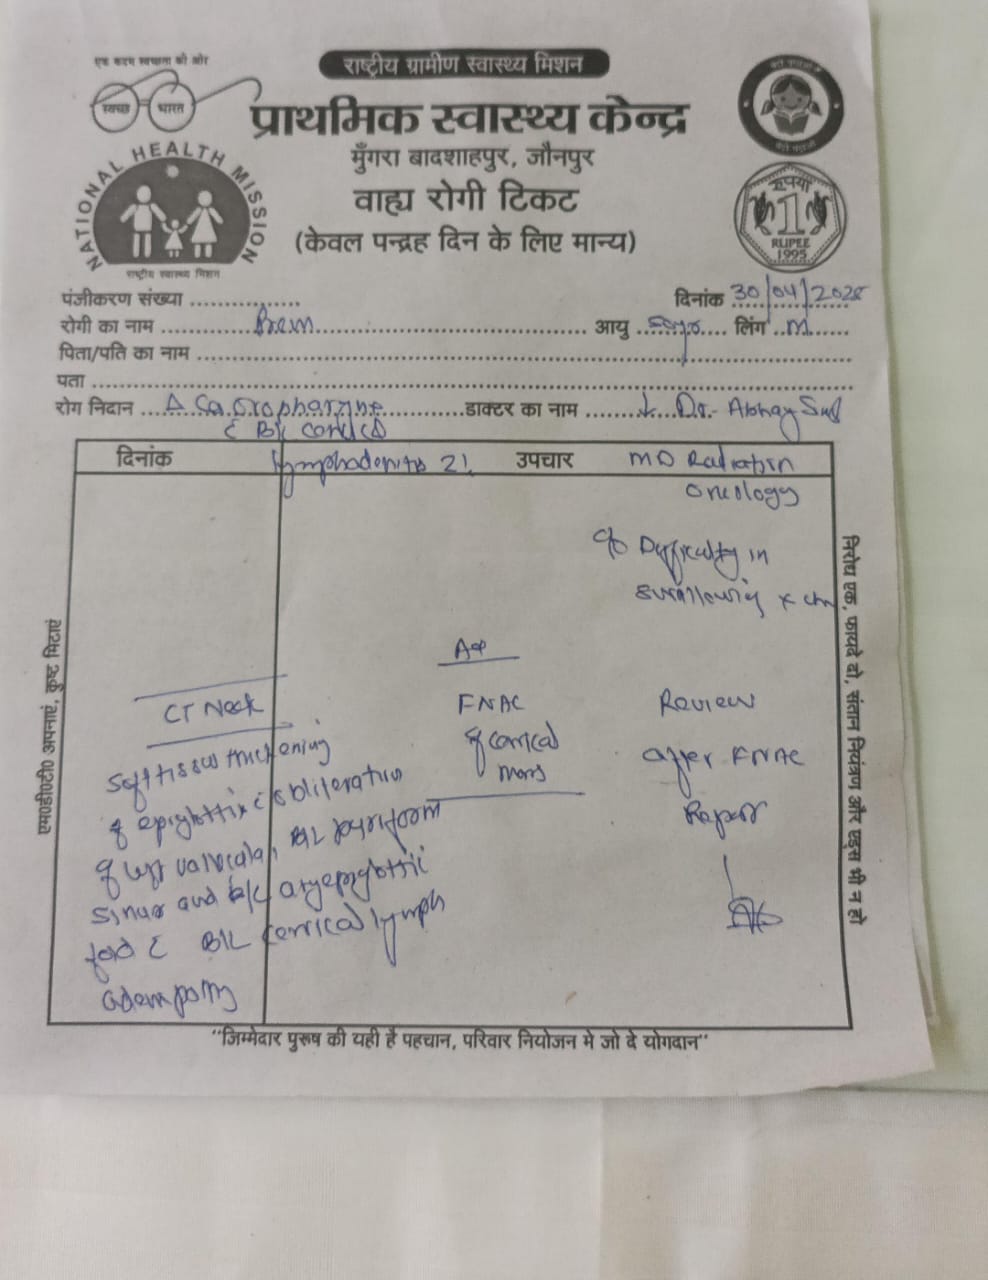 एक कदम स्वच्छता की ओर
स्वच्छ भारत
NATIONAL HEALTH MISSION
राष्ट्रीय स्वास्थ्य मिशन
राष्ट्रीय ग्रामीण स्वास्थ्य मिशन
प्राथमिक स्वास्थ्य केन्द्र
मुँगरा बादशाहपुर, जौनपुर
वाह्य रोगी टिकट
(केवल पन्द्रह दिन के लिए मान्य)
रूपया
1
RUPEE
1995
पंजीकरण संख्या ............... दिनांक 30/04/2025
रोगी का नाम ............ Prem ............ आयु ............ लिंग ..M......
पिता/पति का नाम ............
पता ............
रोग निदान .... Δ Ca oropharynx ............ डाक्टर का नाम ......... Dr. Abhay
c̄ B/L cervical
दिनांक lymphadenitis उपचार MD Radiation
oncology
c/o Difficulty in
swallowing x
Adv
CT Neck
FNAC
of cervical
mass
Review
after FNAC
Report
Soft tissue thickening
of epiglottis c̄ obliteration
of left vallecula, B/L pyriform
sinus and B/L aryepiglottic
fold c̄ B/L cervical lymph
adenopathy
एम०डी०टी० अपनाएं, कुष्ट मिटाएं
निरोध एक, फायदे दो, संतान नियंत्रण और एड्स भी न हो
"जिम्मेदार पुरूष की यही है पहचान, परिवार नियोजन मे जो दे योगदान"